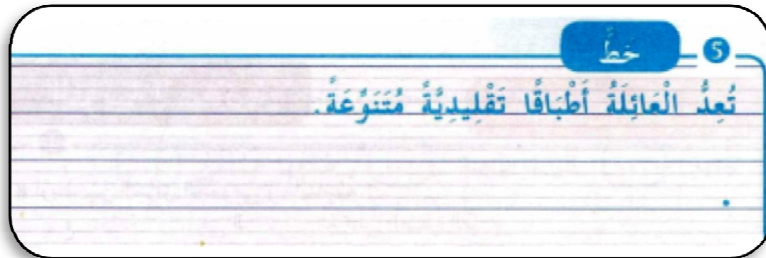 5 خَطٌّ
تُعِدُّ الْعَائِلَةُ أَطْبَاقًا تَقْلِيدِيَّةً مُتَنَوِّعَةً.
.